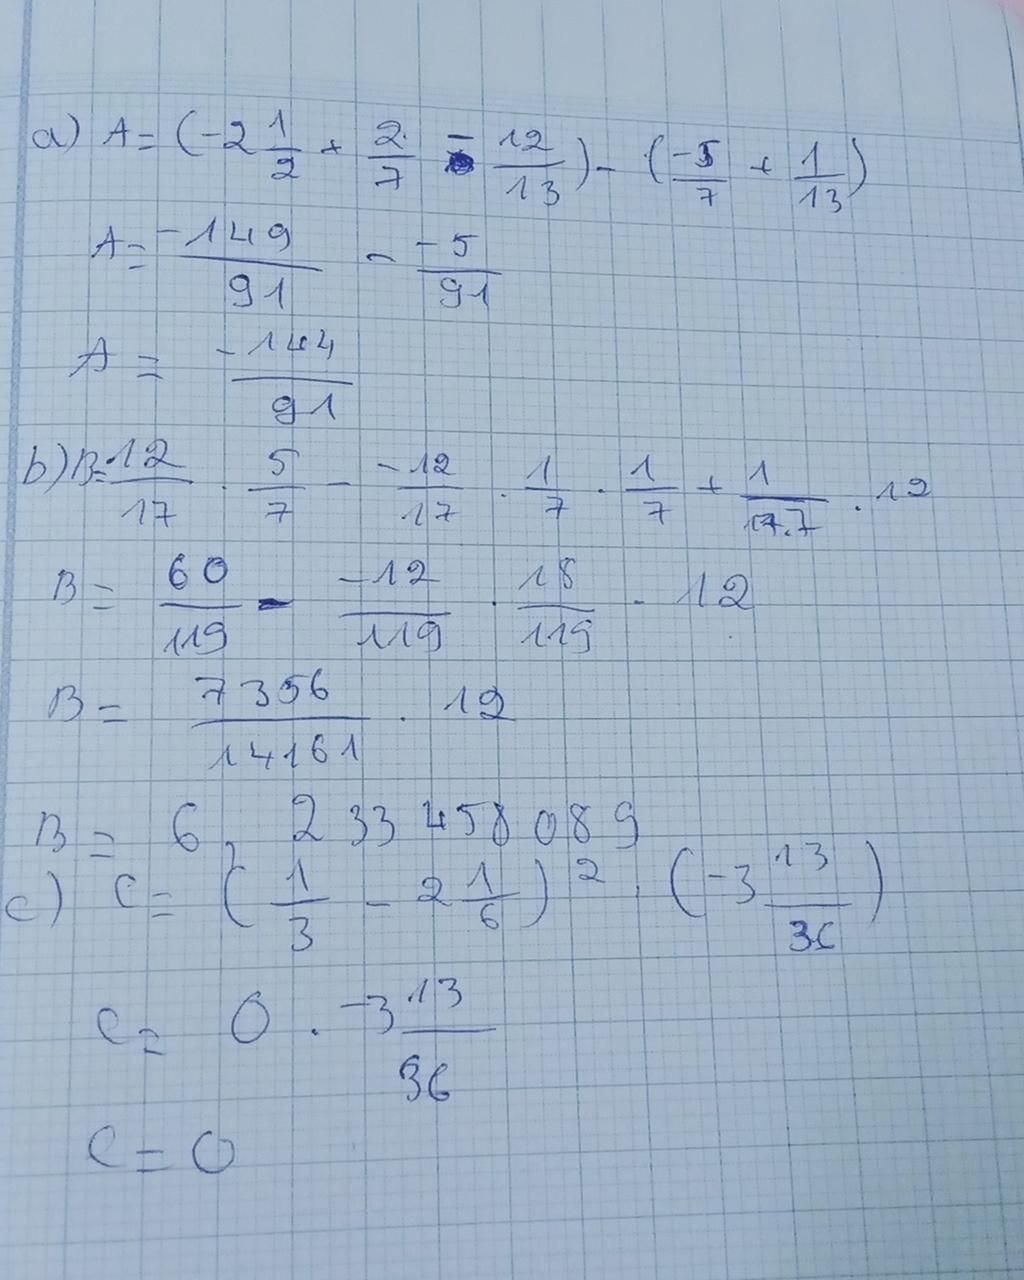 a) A = (-2 1/2 + 2/7 - 12/13) - (-5/7 + 1/13)
A = -149/91 - -5/91
A = -144/91
b) B = 12/17 . 5/7 - -12/17 . 1/7 . 1/7 + 1/17.7 . 12
B = 60/119 - -12/119 . 18/119 . 12
B = 7356/14161 . 12
B = 6,233458089
c) C = (1/3 - 2 1/6)² . (-3 13/36)
C = 0 . -3 13/36
C = 0